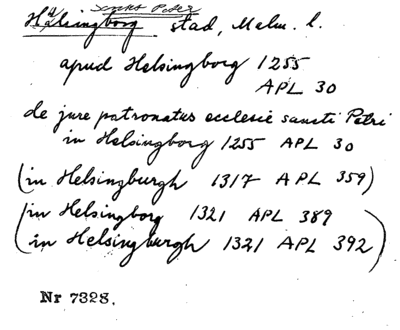 Sankt Peter
Hälsingborg stad, Malm. l.
apud Helsingborg 1255
APL 30
de jure patronatus ecclesie sancti Petri
in Helsingborg 1255 APL 30
(in Helsingburgh 1317 APL 359)
(in Helsingborg 1321 APL 389
in Helsingburgh 1321 APL 392)
Nr 7328.